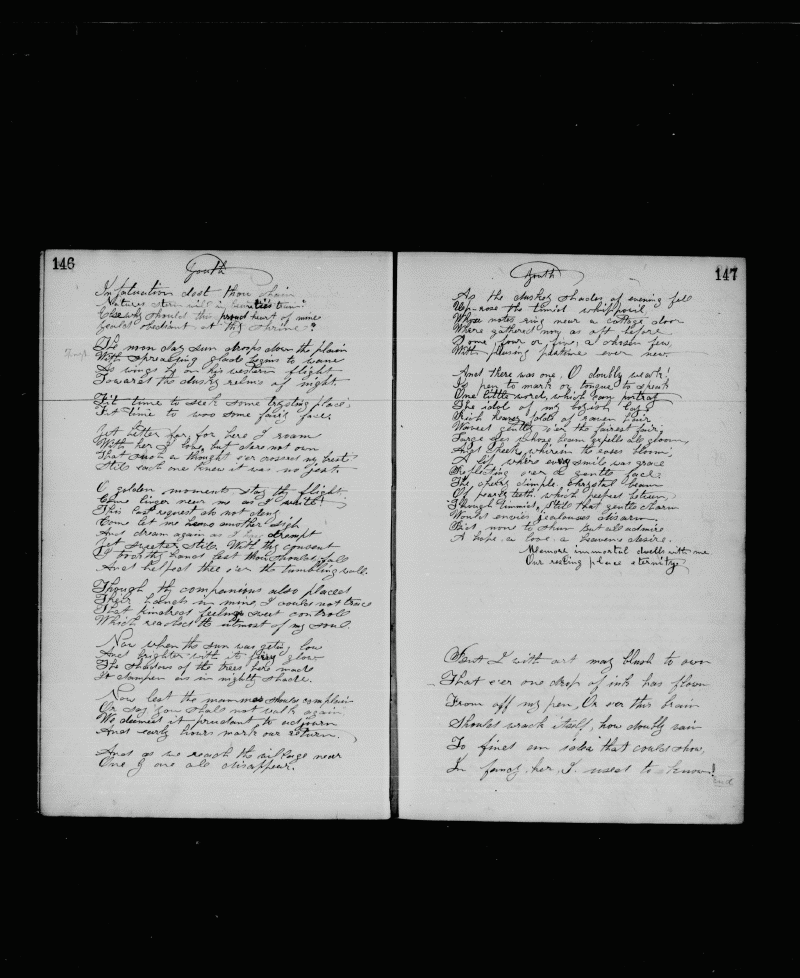 146
Youth
Infatuation dost thou chain
Natures stern will in train
Else why should this proud heart of mine
obedient at thy shrine?
The noon day sun drops down the plain
With spreading glade begins to wane
So wings by on his western flight
Towards the dusky realms of night.
Tis time to seek some trysting place,
Tis time to woo some fair face
Yet better far, for here I roam
With her I love, but dare not own
That such a thought ever crossed my breast
Still each one knew it was no jest.
O golden moments stay thy flight
Come linger near me as I write!
This last request do not deny
Come let me have another sigh
And dream again as I dreampt
Yet sweeter still. With thy consent
I took thy hand lest thou should fall
And helped thee o'er the tumbling wall.
Though thy companions also placed
Their hands in mine, I could not trace
That kindred feeling sweet control
Which reached the utmost of my soul.
Now when the sun was geting low
And brighter with its firey glow
The shadows of the trees have made
It damper in nightly shade.
Now lest the mammas should complain
Or say you shall not walk again
We deemed it prudent to adjourn
And early hours mark our return.
And as we reach the village near
One by one all disappear.
147
Youth
As the dusky shades of evening fell
Up-rose the timid whipporil
Whose notes ring near a cottage door
Where gathered now as oft before
Some four or five, a chosen few,
With pleasing pastime ever new.
And there was one, O doubly weak!
Is pen to mark or tongue to speak
One little word, which may portray
The idol of my boyish days
Rich heavy folds of raven hair
Waved gently o'er the fairest fair;
Large eyes whose beam expells all gloom,
And cheeks, wherein to roses bloom;
A lip where every smile was grace
Reflecting over a gentle face;
The, open, simple, chrystal beam
Of pearly teeth, which peeped between,
Though timid, still that gentle charm
Would envies jealouses disarm.
But none to shun but all admire
A hope, a love, a heaven's desire.
Memore immortal dwells with me
Our resting place eternity
But I with art may blush to own
That ever one drop of ink has flown
From off my pen, Or ever this brain
Should wrack itself, how doubly vain
To find an idea that could show,
In fancy, her, I used to know!
End